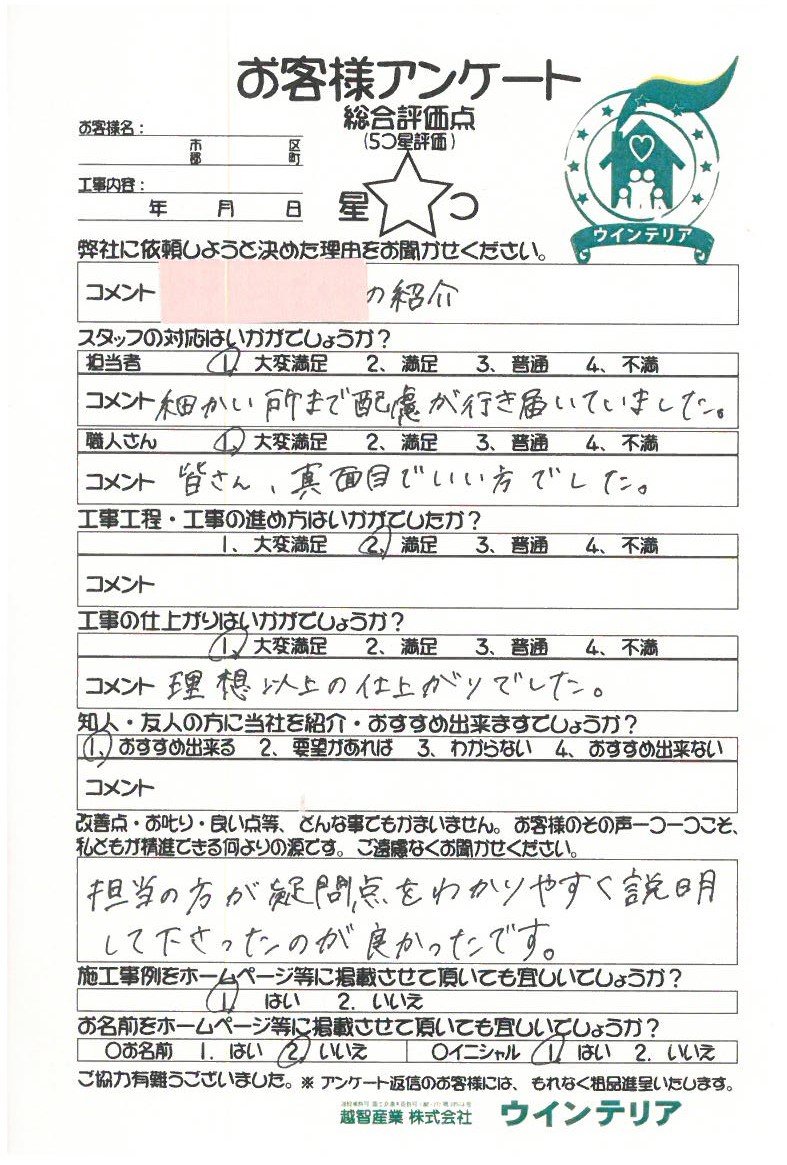 お客様アンケート
総合評価点
(5つ星評価)
お客様名：
市 区
郡 町
工事内容：
年 月 日
星 つ
ウインテリア
弊社に依頼しようと決めた理由をお聞かせください。
コメント の紹介
スタッフの対応はいかがでしょうか？
担当者 1、大変満足 2、満足 3、普通 4、不満
コメント 細かい所まで配慮が行き届いていました。
職人さん 1、大変満足 2、満足 3、普通 4、不満
コメント 皆さん、真面目でいい方でした。
工事工程・工事の進め方はいかがでしたか？
1、大変満足 2、満足 3、普通 4、不満
コメント
工事の仕上がりはいかがでしょうか？
1、大変満足 2、満足 3、普通 4、不満
コメント 理想以上の仕上がりでした。
知人・友人の方に当社を紹介・おすすめ出来ますでしょうか？
1、おすすめ出来る 2、要望があれば 3、わからない 4、おすすめ出来ない
コメント
改善点・お叱り・良い点等、どんな事でもかまいません。お客様のその声一つ一つこそ、
私どもが精進できる何よりの源です。ご遠慮なくお聞かせください。
担当の方が疑問点をわかりやすく説明
して下さったのが良かったです。
施工事例をホームページ等に掲載させて頂いても宜しいでしょうか？
1. はい 2. いいえ
お名前をホームページ等に掲載させて頂いても宜しいでしょうか？
〇お名前 1. はい 2. いいえ 〇イニシャル 1. はい 2. いいえ
ご協力有難うございました。※ アンケート返信のお客様には、もれなく粗品進呈いたします。
越智産業 株式会社 ウインテリア